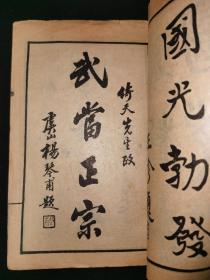 國光勃發
倚天先生政
武當正宗
虞山楊琴甫題